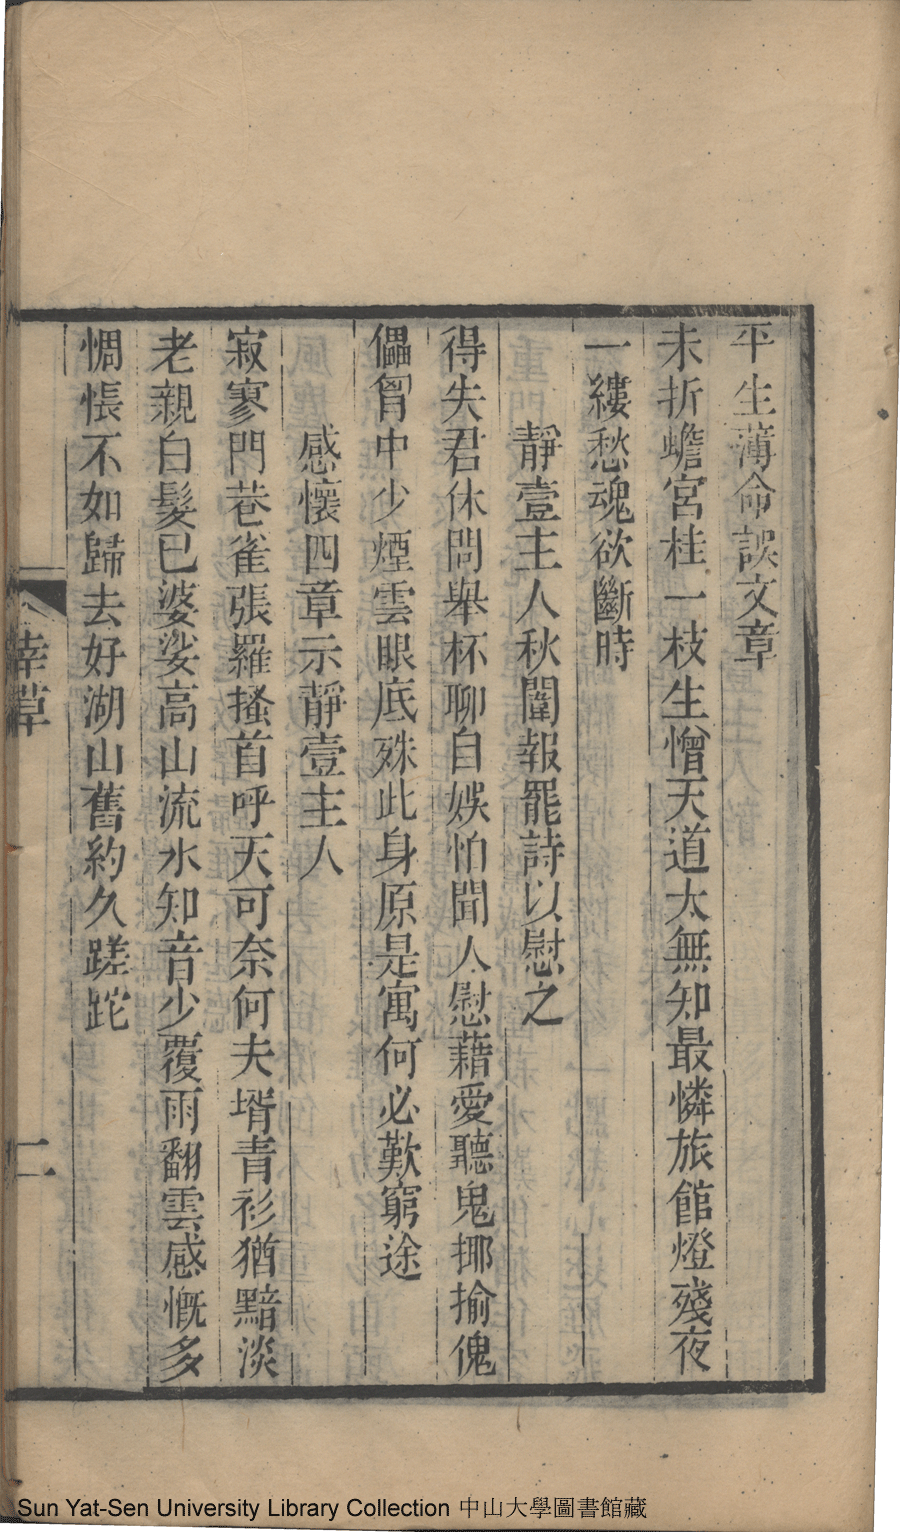 平生薄命誤文章
未折蟾宮桂一枝生憎天道太無知最憐旅館燈殘夜
一縷愁魂欲斷時
靜壹主人秋闈報罷詩以慰之
得失君休問舉杯聊自娛怕聞人慰藉愛聽鬼揶揄傀
儡胷中少煙雲眼底殊此身原是寓何必歎窮途
感懷四章示靜壹主人
寂寥門巷雀張羅搔首呼天可奈何夫壻青衫猶黯淡
老親白髮已婆娑高山流水知音少覆雨翻雲感慨多
惆悵不如歸去好湖山舊約久蹉跎
草
二
Sun Yat-Sen University Library Collection 中山大學圖書館藏